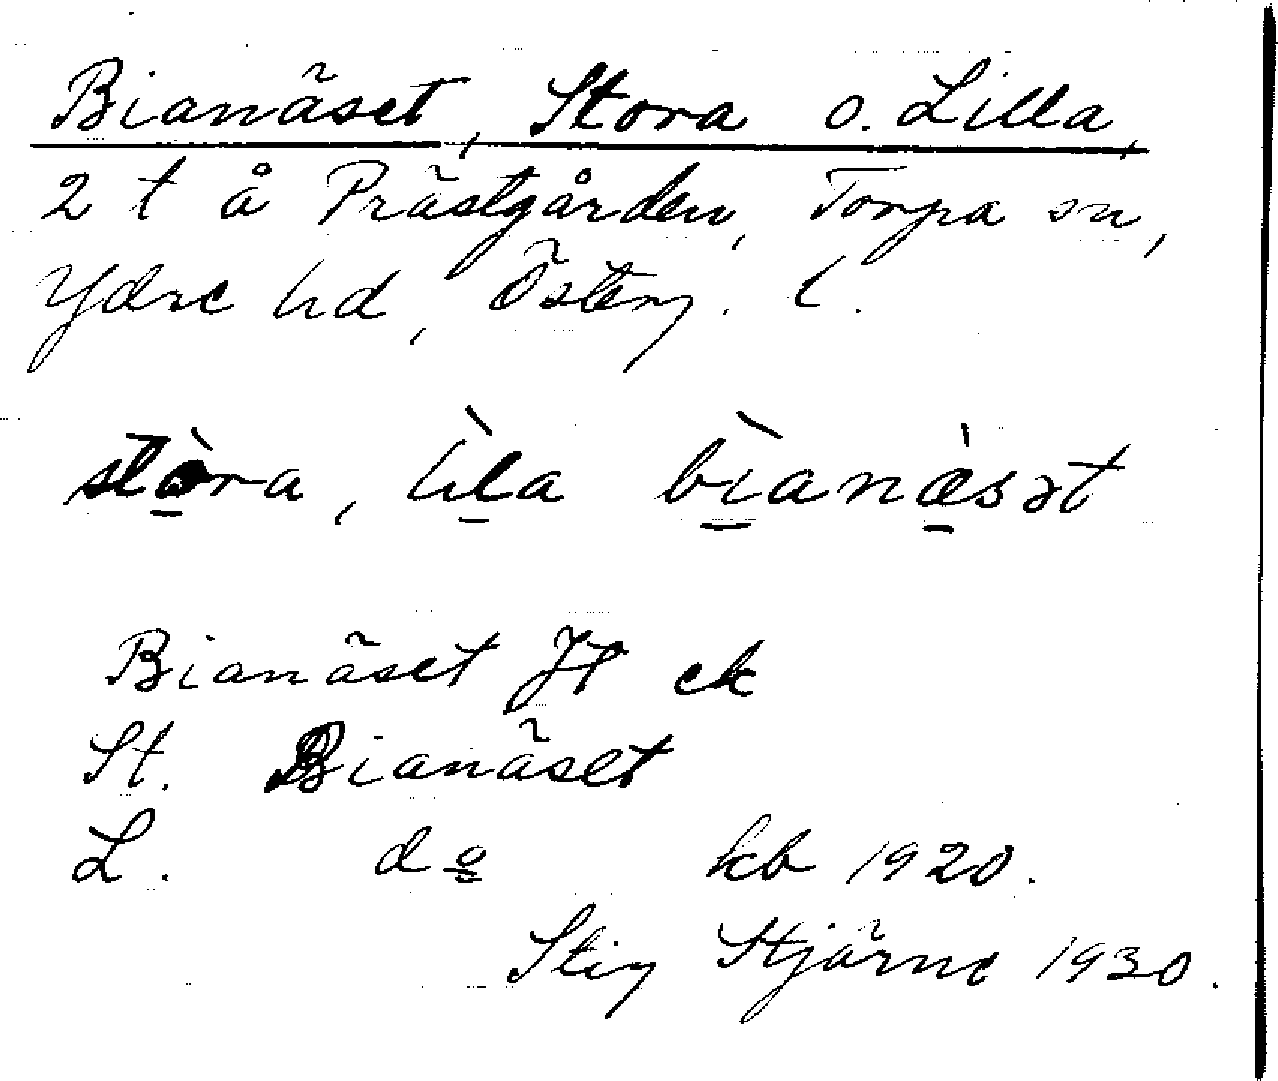 Bianäset, Stora o. Lilla,
2 t å Prästgården, Torpa sn,
Ydre hd, Österg. l.
stòra, lìla bìanæ̀sət
Bianäset JK ek
St. Bianäset
L. do kb 1920.
Stig Stjärne 1930.